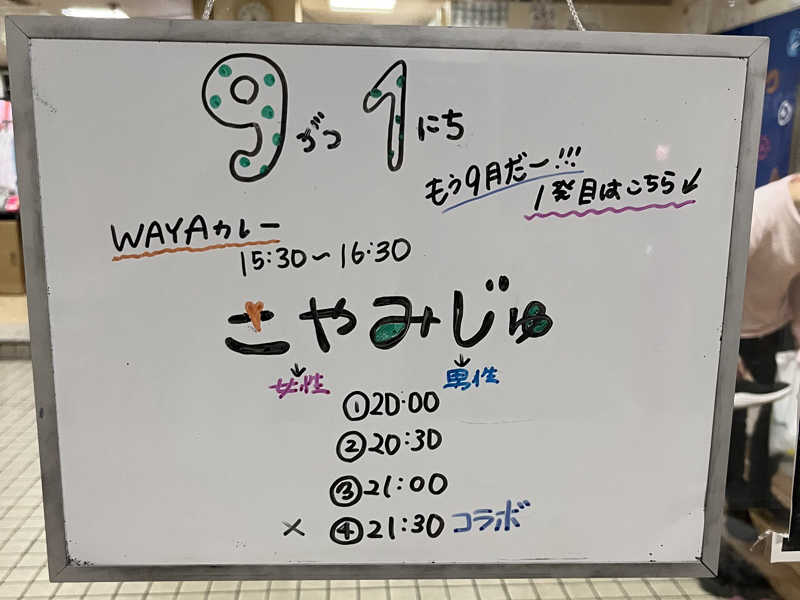 9がつ1にち
もう9月だー!!!
1発目はこちら↙
WAYAカレー
15:30～16:30
こやみじゅ
↓ ↓
女性 男性
①20:00
②20:30
③21:00
×④21:30 コラボ